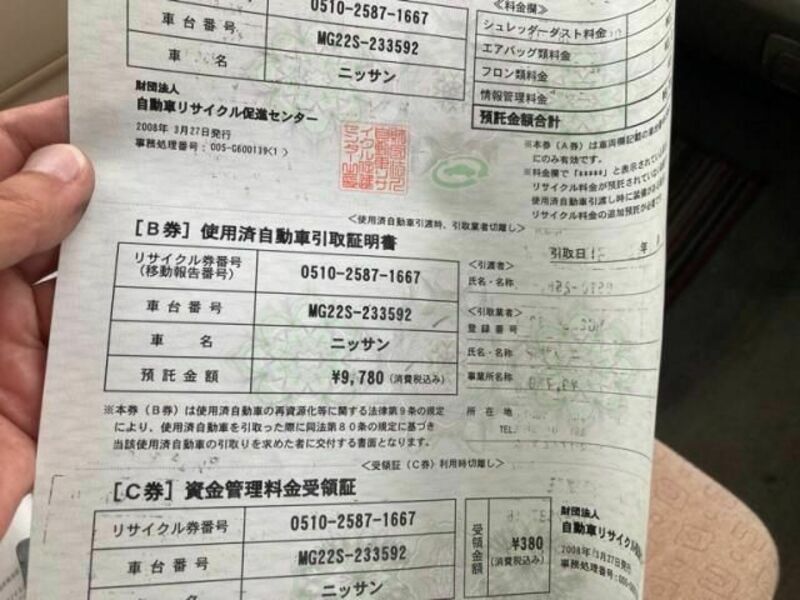 0510-2587-1667
車台番号
MG22S-233592
車 名
ニッサン
<料金欄>
シュレッダーダスト料金
エアバッグ類料金
フロン類料金
情報管理料金
預託金額合計
財団法人
自動車リサイクル促進センター
2008年 3月27日発行
事務処理番号:005-G600119<1>
※本券(A券)は車両欄記載の車
にのみ有効です。
※料金欄で「*****」と表示されてい
リサイクル料金が預託されていな
使用済自動車引渡し時に装備があ
リサイクル料金の追加預託が必
<使用済自動車引渡時、引取業者切離し>
[B券] 使用済自動車引取証明書
引取日 年
リサイクル券番号
(移動報告番号)
0510-2587-1667
車台番号
MG22S-233592
車 名
ニッサン
預託金額
¥9,780 (消費税込み)
<引渡者>
氏名・名称
<引取業者>
登録番号
氏名・名称
事業所名称
所在地
TEL.
※本券(B券)は使用済自動車の再資源化等に関する法律第9条の規定
により、使用済自動車を引取った際に同法第80条の規定に基づき
当該使用済自動車の引取りを求めた者に交付する書面となります。
<受領証(C券)利用時切離し>
[C券] 資金管理料金受領証
リサイクル券番号
0510-2587-1667
車台番号
MG22S-233592
車 名
ニッサン
受領金額
¥380
(消費税込み)
財団法人
自動車リサイクル
2008年 3月27日発行
事務処理番号:005-